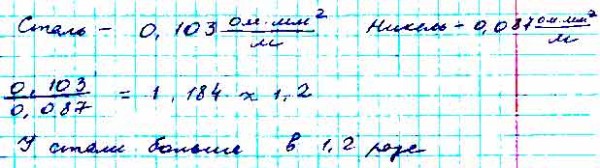 Сталь - 0,103 ом·мм²/м Никель - 0,087 ом·мм²/м
0,103/0,087 = 1,184 ≈ 1,2
У стали больше в 1,2 раза